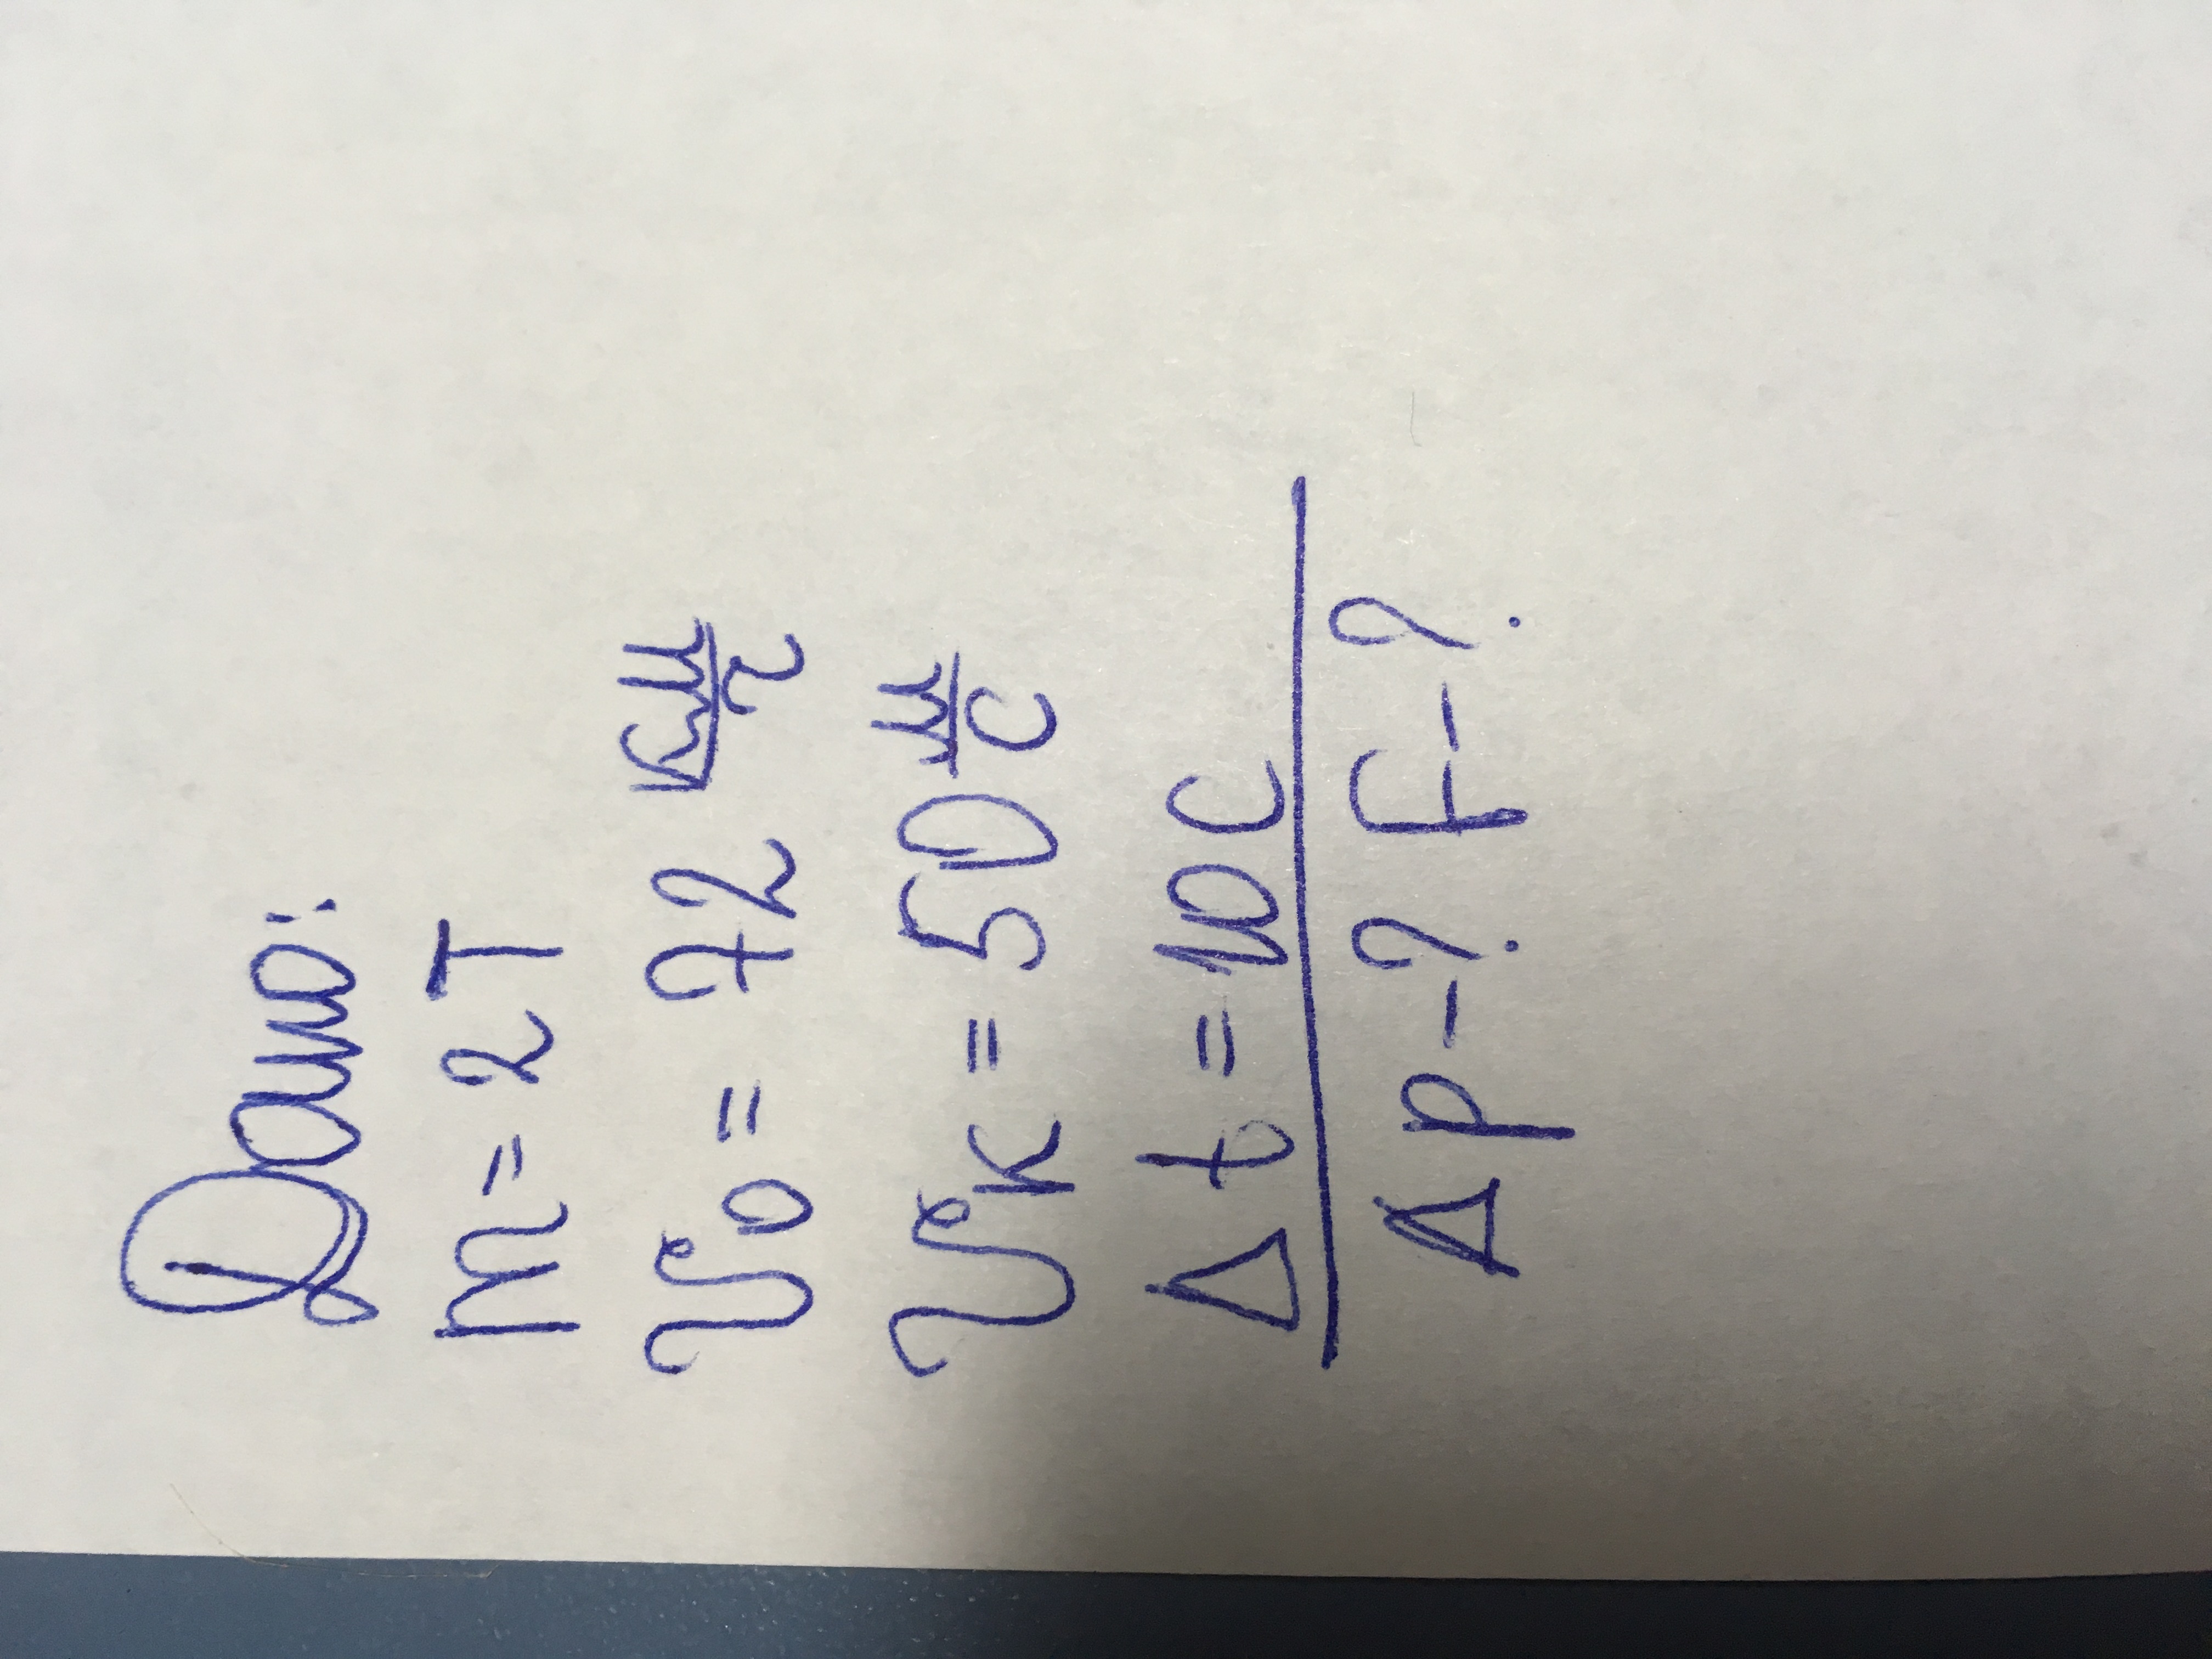 Дано:
m = 2 Т
V₀ = 72 км/ч
Vк = 50 м/с
Δt = 10 С
Δp - ? F - ?